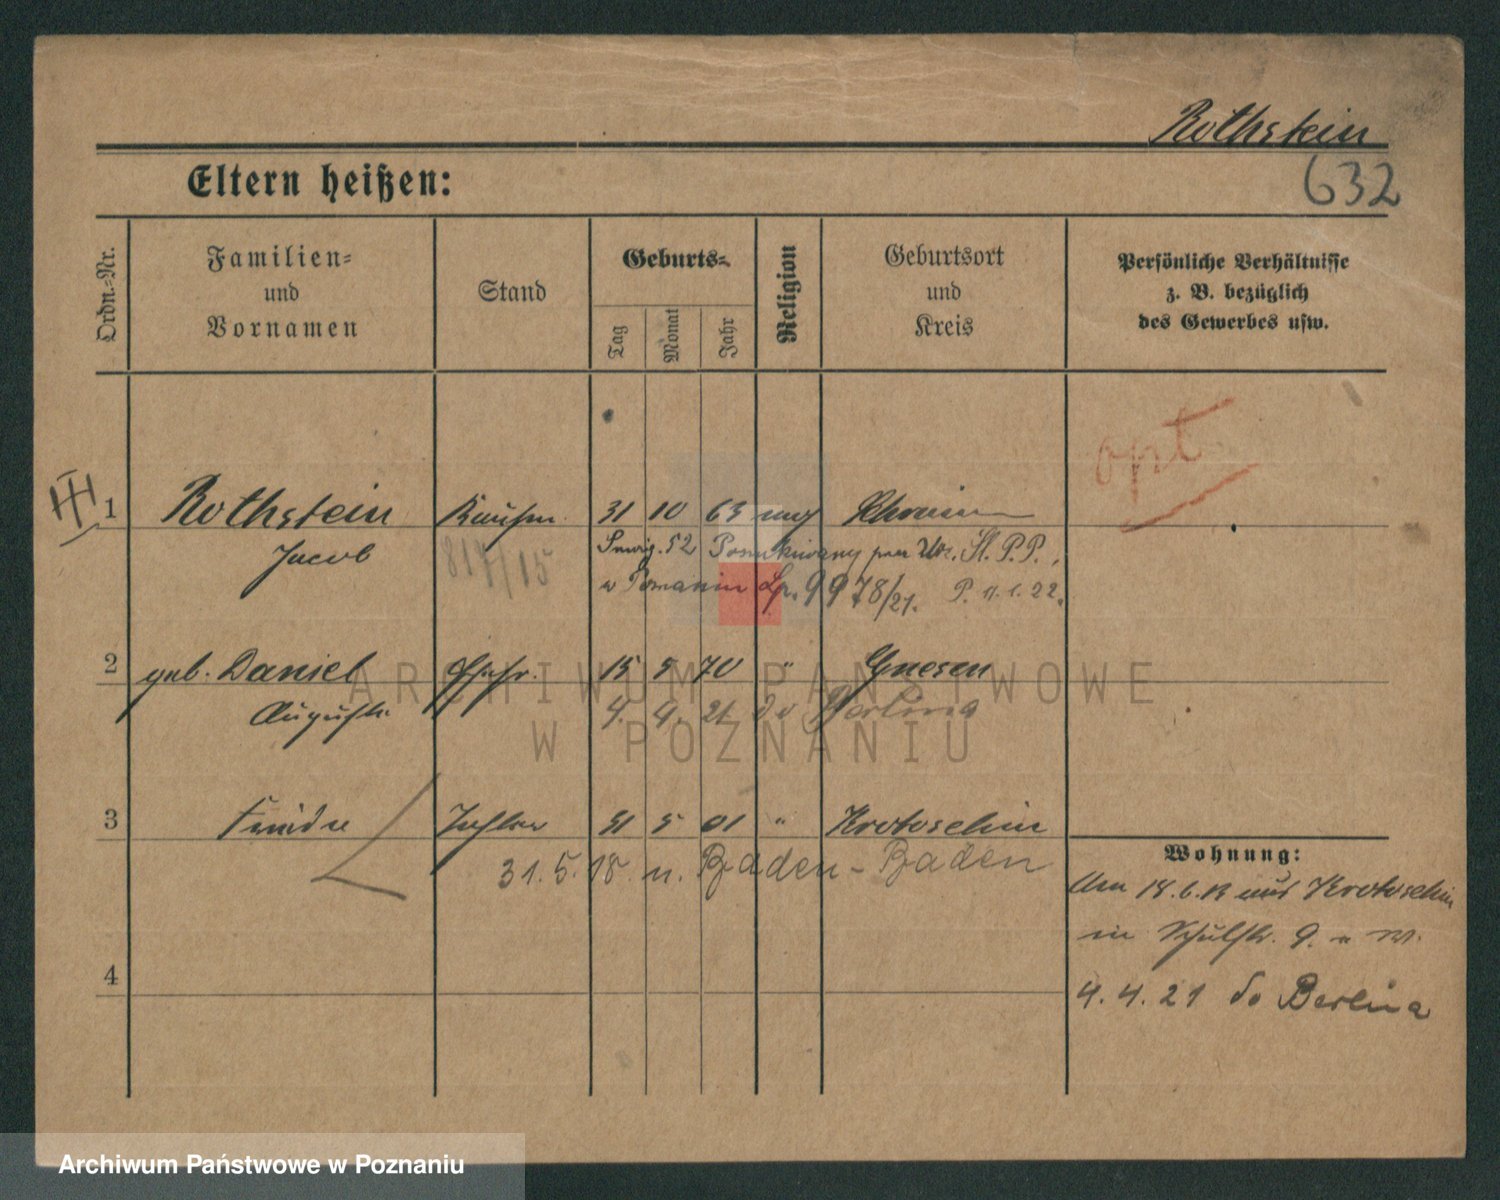 Rothstein
632
Eltern heißen:
Ordn.-Nr.
Familien- und Vornamen
Stand
Geburts-
Tag
Monat
Jahr
Religion
Geburtsort und Kreis
Persönliche Verhältnisse z. B. bezüglich des Gewerbes usw.
opt
1 Rothstein Kaufm. 31 10 63 Schrimm
Jacob
817/15
52 Poszukiwany przez St. P.P.,
w Poznaniu Lp. 9978/21. P. 11.1.22.
2 geb. Daniel Ehefr. 15 5 70 " Gnesen
Auguste
4. 4. 21 do Berlina
3 Tochter 31 5 01 " Krotoschin
31.5.18 n. Baden-Baden
Wohnung:
Am 18.6.13 aus Krotoschin
in Schulstr. 9.
4
4.4.21 do Berlina
ARCHIWUM PAŃSTWOWE
W POZNANIU
Archiwum Państwowe w Poznaniu